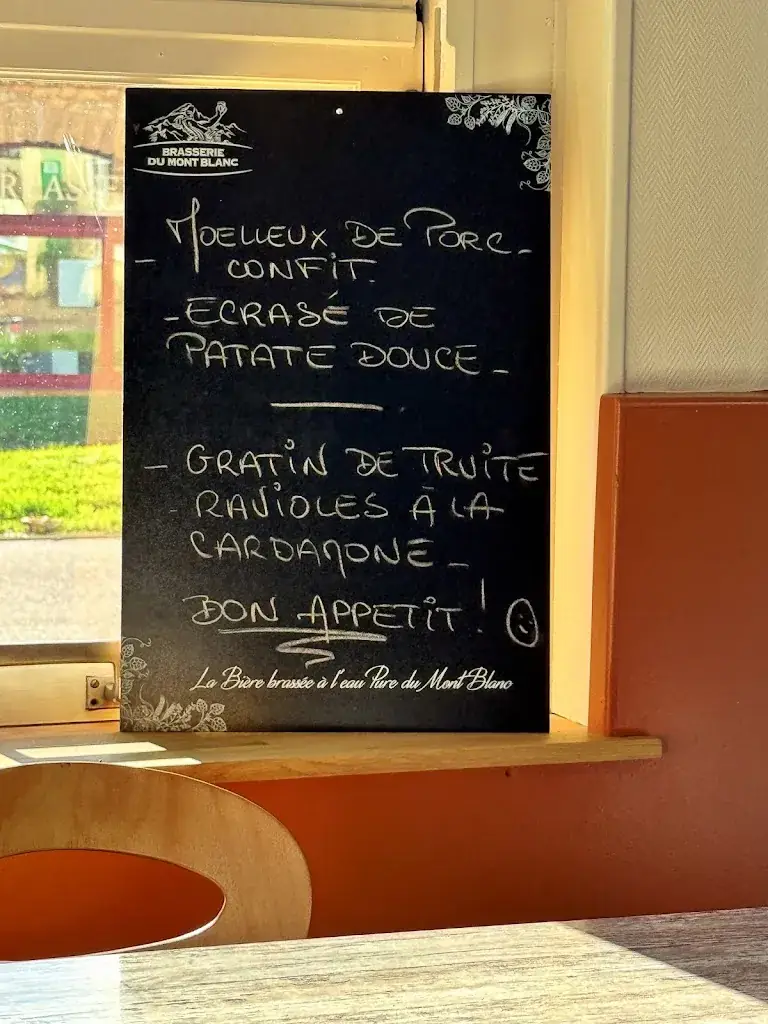 BRASSERIE
DU MONT BLANC
- MOELLEUX DE PORC -
CONFIT.
- ECRASÉ DE
PATATE DOUCE -
- GRATIN DE TRUITE
- RAVIOLES À LA
CARDAMONE -
BON APPETIT !
La Bière brassée à l'eau Pure du Mont Blanc